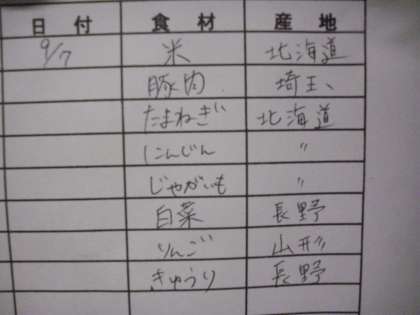 日付 食材 産地
9/7 米 北海道
豚肉 埼玉、
たまねぎ 北海道
にんじん 〃
じゃがいも 〃
白菜 長野
りんご 山形
きゅうり 長野